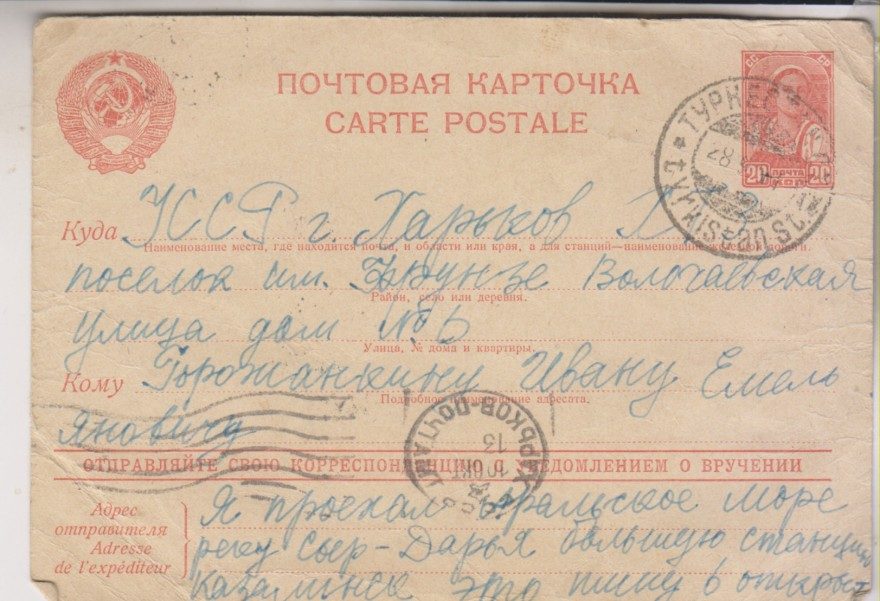 ПОЧТОВАЯ КАРТОЧКА
CARTE POSTALE
СС СР
20 ПОЧТА 20
Куда УССР г. Харьков
Наименование места, где находится почта, и области или края, а для станций—наименование железной дороги.
поселок им. Фрунзе Волочаевская
Район, село или деревня.
улица дом № 6
Улица, № дома и квартиры.
Кому Горожанкину Ивану Емель
Подробное наименование адресата.
яновичу
ХАРЬКОВ-ПОЧТАМТ
13
10 ОКТ
ОТПРАВЛЯЙТЕ СВОЮ КОРРЕСПОНДЕНЦИЮ С УВЕДОМЛЕНИЕМ О ВРУЧЕНИИ
Адрес отправителя
Adresse de l'expéditeur
Я проехал Аральское море
реку Сыр-Дарья большую станцию
Казалинск это пишу 6 открыт